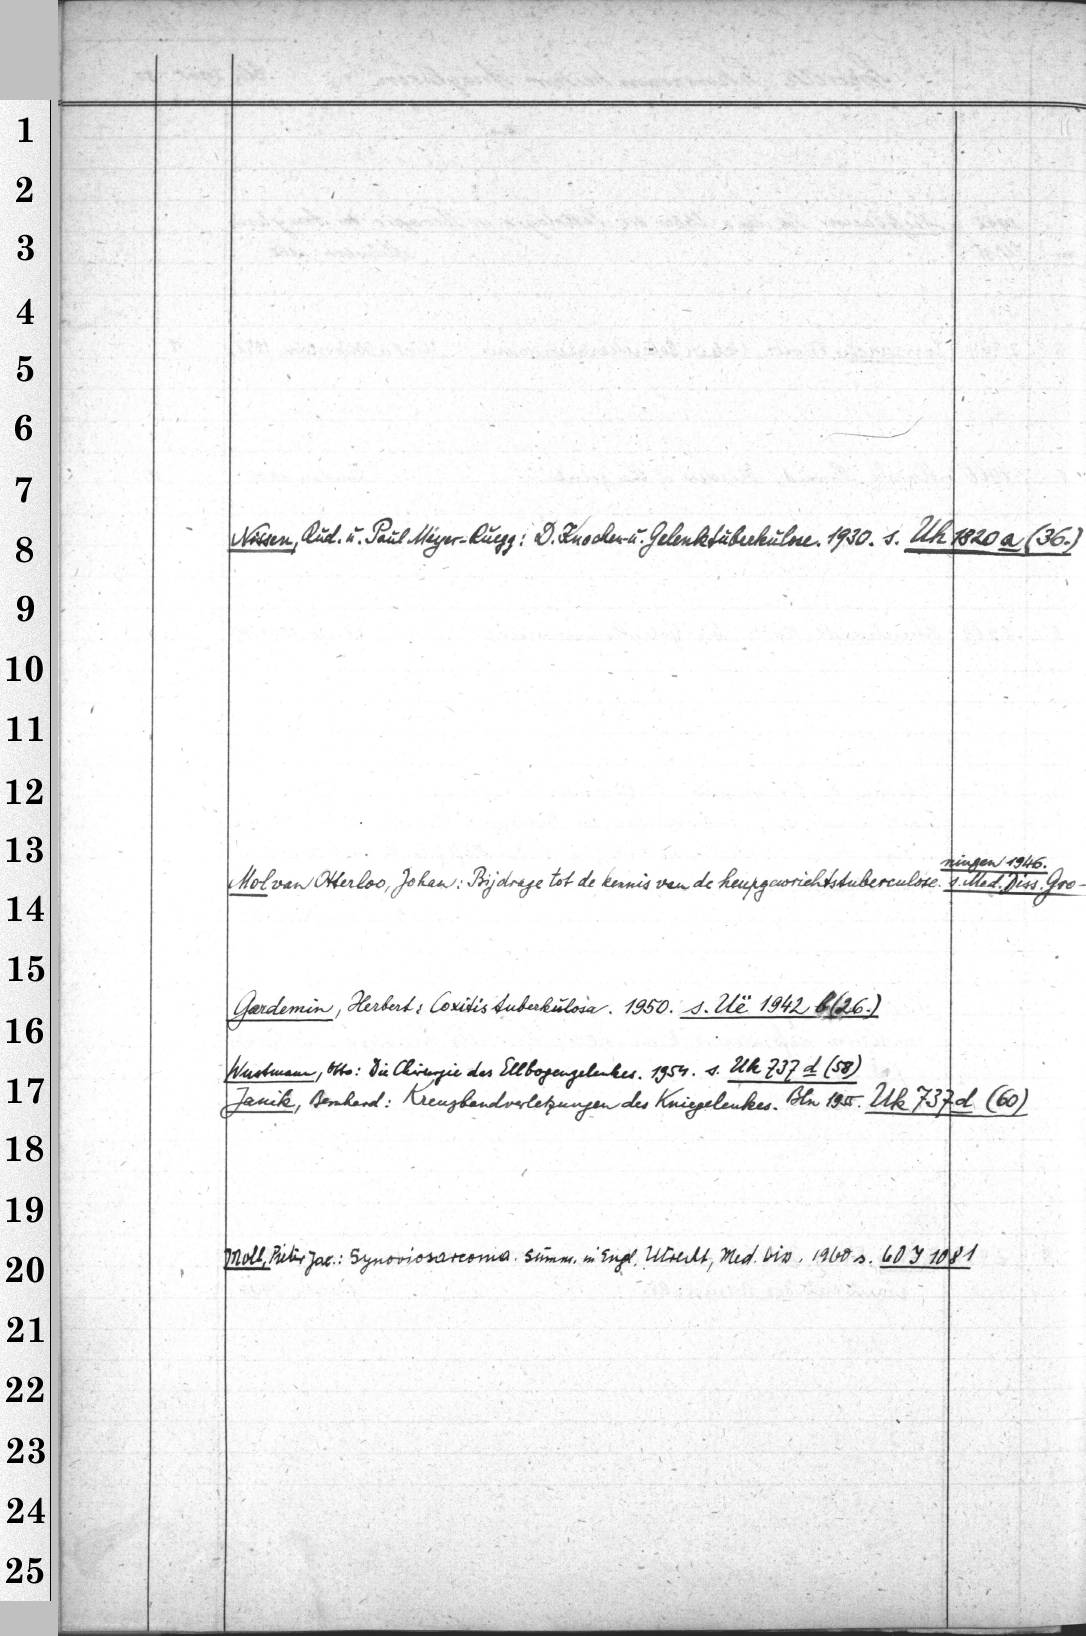 1
2
3
4
5
6
7
Nissen, Rud. u. Paul Meyer-Ruegg: D. Knochen- u. Gelenktuberkulose. 1930. s. Uk 1820 a (36.)
8
9
10
11
12
13
ningen 1946.
Mol van Otterloo, Johan: Bijdrage tot de kennis van de heupgewrichtstuberculose. s. Med. Diss. Gro-
14
15
Gardemin, Herbert: Coxitis tuberkulosa. 1950. s. Uë 1942 b (26.)
16
Wustmann, Otto: Die Chirurgie des Ellbogengelenkes. 1954. s. Uk 737 d (58)
17
Janik, Bernhard: Kreuzbandverletzungen des Kniegelenkes. Bln 1955. Uk 737 d (60)
18
19
Moll, Pieter Jac.: Synoviosarcoma. Summ. in Engl. Utrecht, Med. Diss. 1960 s. 60 J 1081
20
21
22
23
24
25